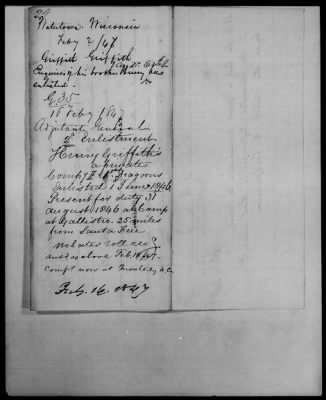 Watertown. Wisconsin
Feby 2/47
Griffith Griffith
Enquires if his brother Henry has
enlisted.
G.35
16 Feby 1847
Adjutant General
of Enlistment
Henry Griffith's
a private
Comp 1st Dragoons
enlisted 1 June 1846
Present for duty 31
August 1846 at Camp
at Gallisteo. 25 miles
from Santa Fee
no later roll recd
ansd as above Feb. 16/47.
Compy now at
Feb. 16. 1847